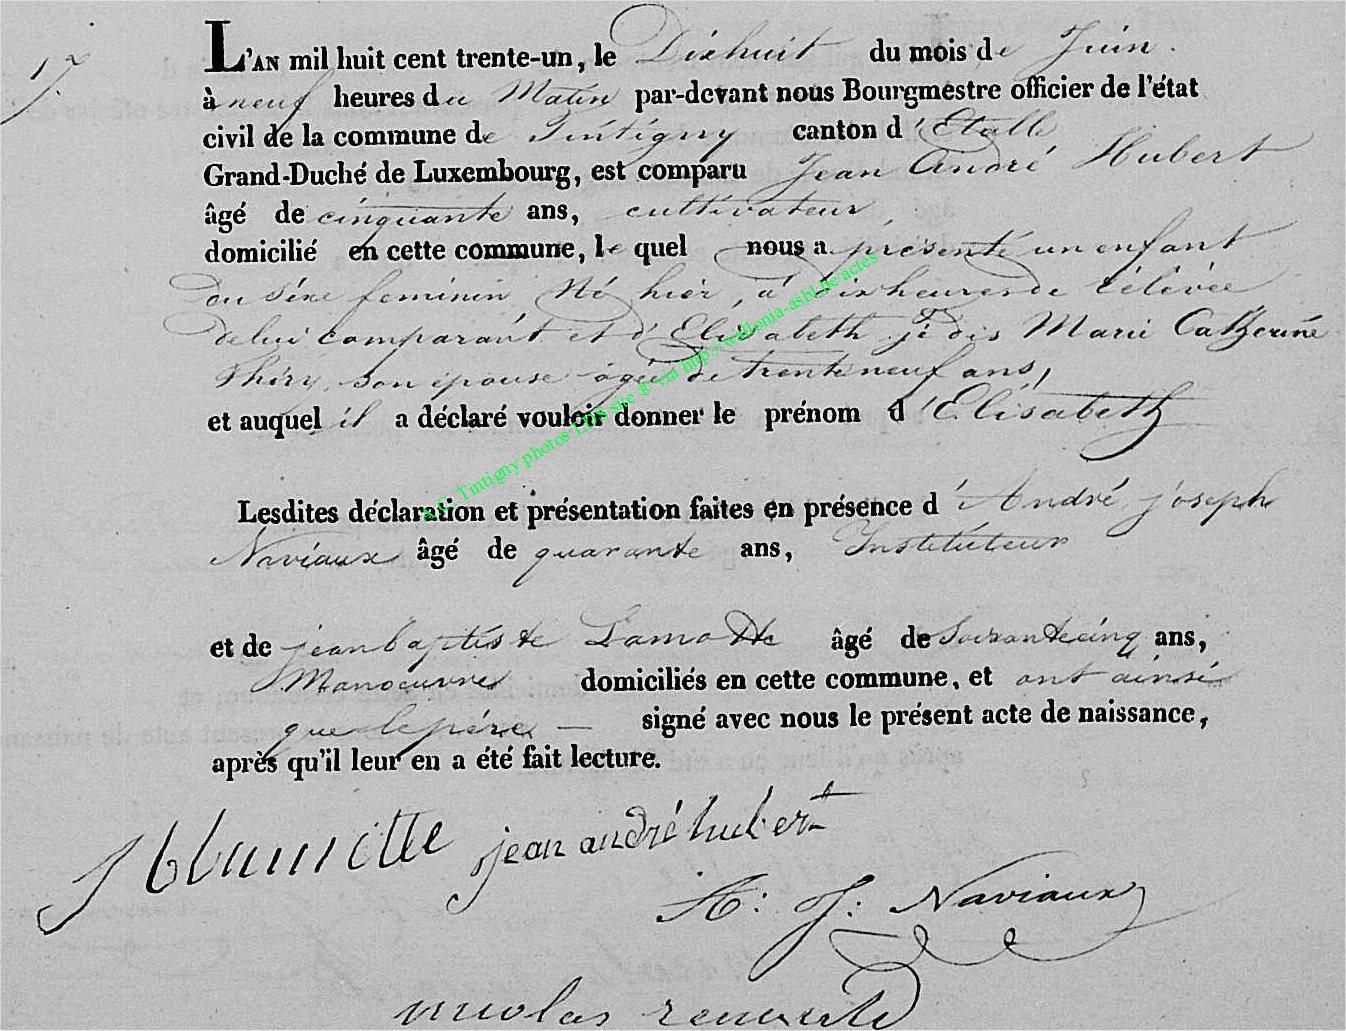 17
L'AN mil huit cent trente-un, le Dixhuit du mois de Juin.
à neuf heures du Matin par-devant nous Bourgmestre officier de l'état
civil de la commune de Tintigny canton d'Etalle
Grand-Duché de Luxembourg, est comparu Jean André Hubert
âgé de cinquante ans, cultivateur,
domicilié en cette commune, le quel nous a présenté un enfant
du séxe feminin Né hiér, à dix heures de
de lui comparant et d'Elisabeth je dis Marie Catherine
Thiry, son épouse âgée de trente neuf ans,
et auquel il a déclaré vouloir donner le prénom d'Elisabeth
Lesdites déclaration et présentation faites en présence d'André joseph
Naviaux âgé de quarante ans, Instituteur
et de jean baptiste Lamotte âgé de Soixante cinq ans,
Manoeuvres domiciliés en cette commune, et ont ainsi
que le pére — signé avec nous le présent acte de naissance,
après qu'il leur en a été fait lecture.
jean andré hubert
A: J: Naviaux
nicolas
A.C. Tintigny photos LDS site © via http://wallonia-asbl.be/actes